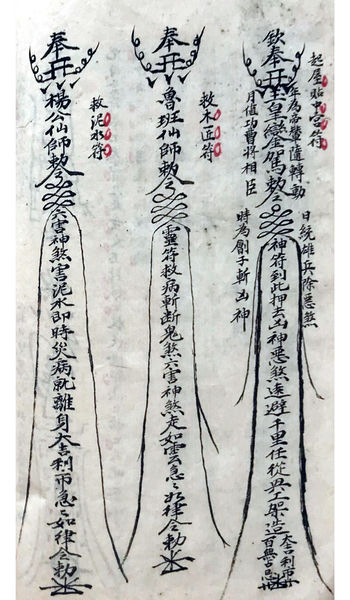 起屋貼中宮符
年為帝輦隨轉動
日統雄兵除惡煞
欽奉皇鑾駕敕令神符到此押去凶神惡煞遠避千里任從興工架造大吉利市百無忌
月值功曹將相臣
時為劊子斬凶神
救木匠符
奉魯班仙師敕令靈符救病斬断鬼煞六害神煞走如雲急〻如律令敕
救泥水符
奉楊公仙師敕令六害神煞害泥水即時災病就離身大吉利市急〻如律令敕